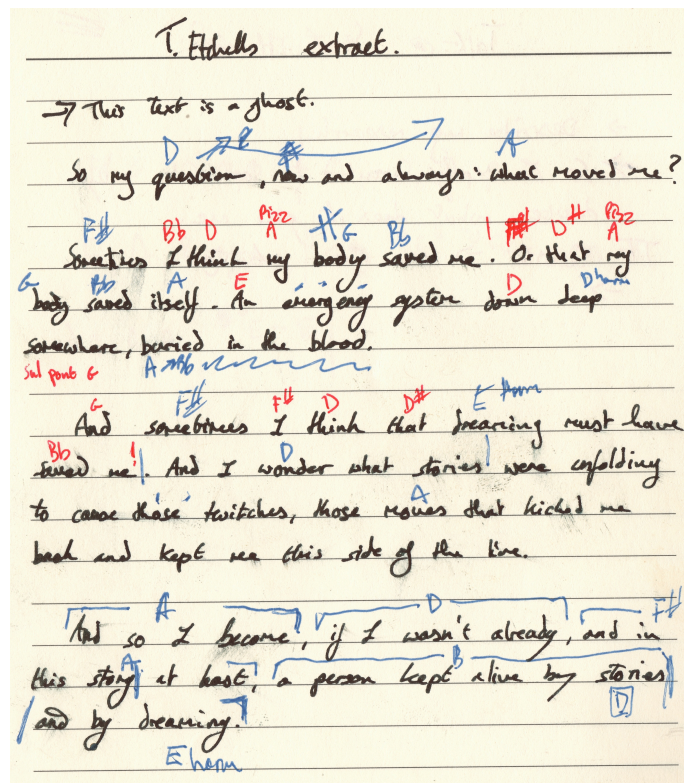 T. Etchells extract.
→ This text is a ghost.
D A
So my question, now and always: what moved me?
F# Bb D Pizz A G Bb D# Pizz A
Sometimes I think my body saved me. Or that my
G Bb A E D D harm
body saved itself. An emergency system down deep
somewhere, buried in the blood.
Sul pont G A → Bb
G F# F# D D# E harm
And sometimes I think that dreaming must have
Bb D
saved me! And I wonder what stories were unfolding
A
to cause those twitches, those moves that kicked me
back and kept me this side of the line.
A D F#
And so I become, if I wasn't already, and in
A B
this story at least, a person kept alive by stories
D
and by dreaming.
E harm